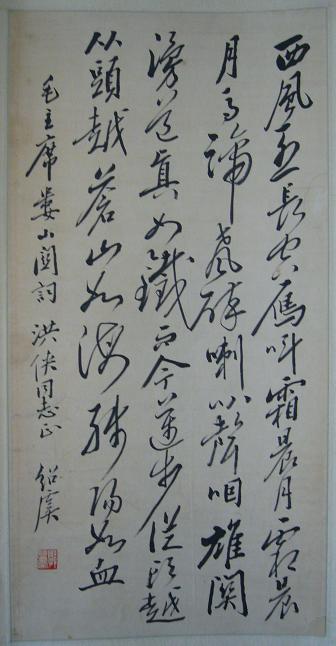 西風烈長空雁叫霜晨月霜晨
月馬蹄聲碎喇叭聲咽雄關
漫道真如鐵而今邁步從頭越
从頭越蒼山如海殘陽如血
毛主席婁山關詞 洪俠同志正 紹虞